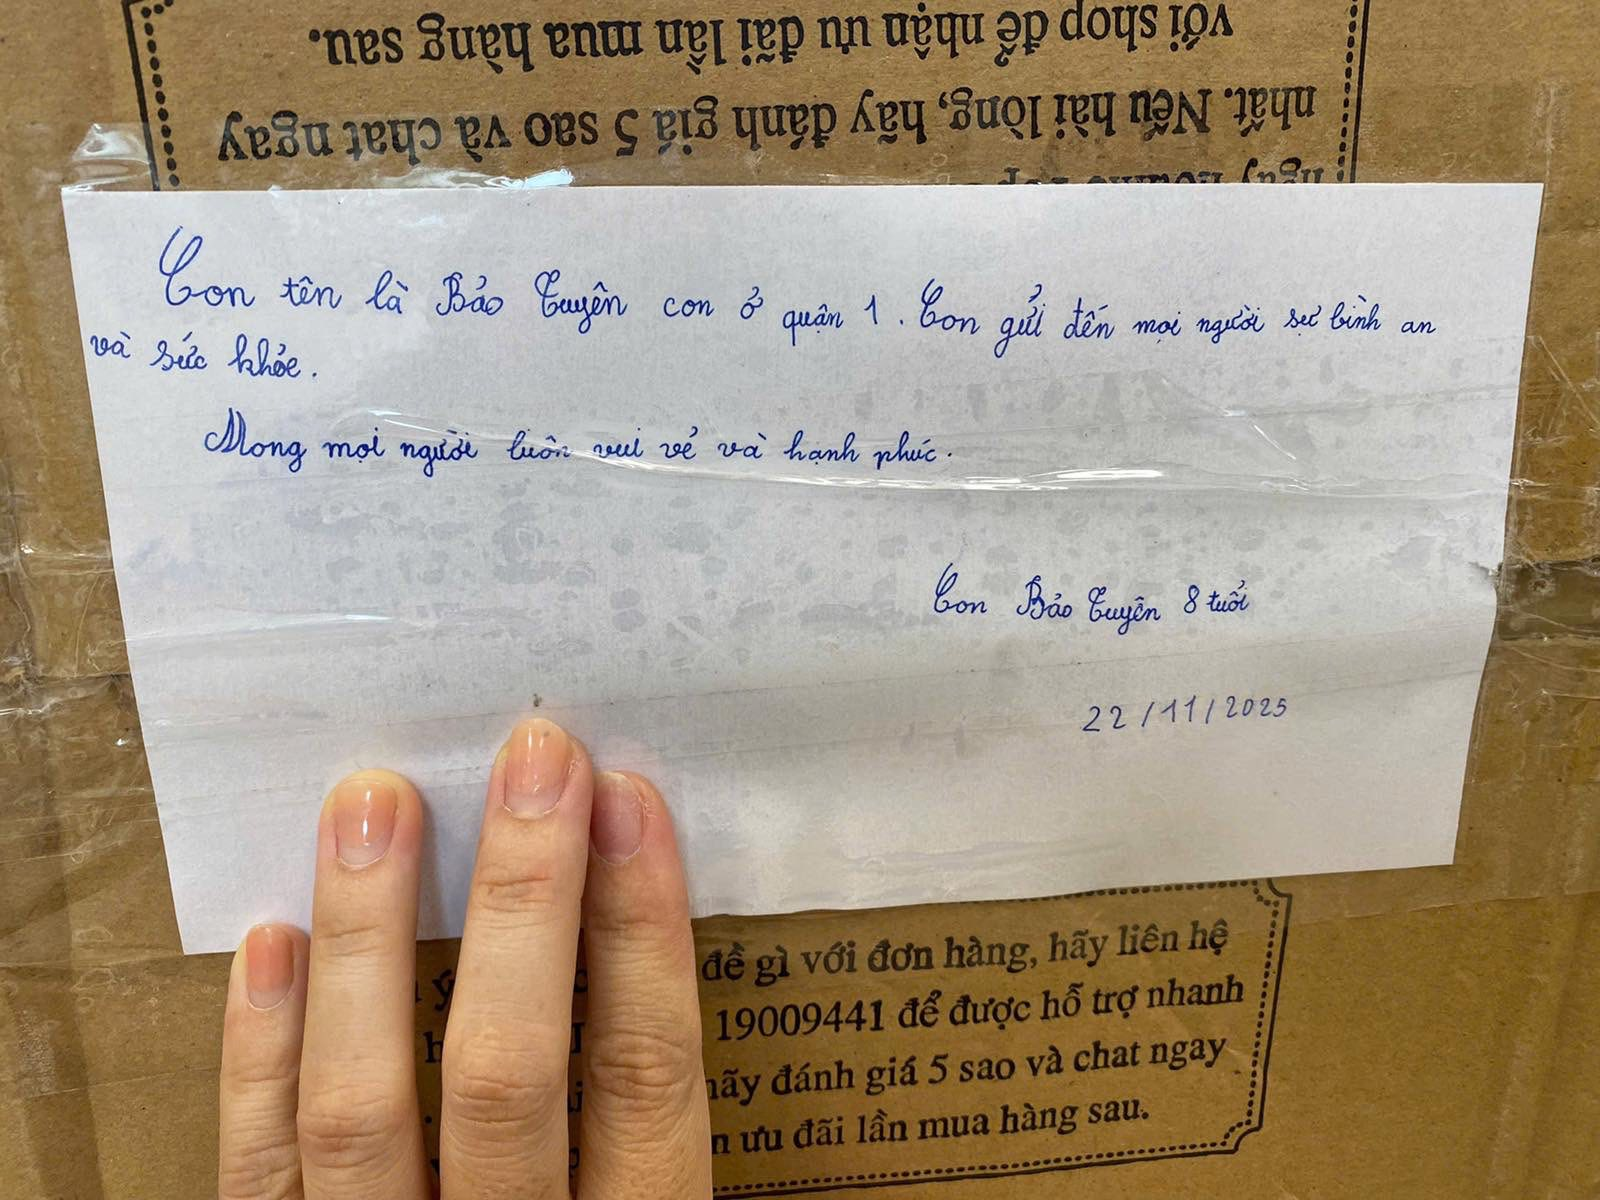 với shop để nhận ưu đãi lần mua hàng sau.
nhất. Nếu hài lòng, hãy đánh giá 5 sao và chat ngay
ngay
Con tên là Bảo Tuyên con ở quận 1. Con gửi đến mọi người sự bình an
và sức khỏe.
Mong mọi người luôn vui vẻ và hạnh phúc.
Con Bảo Tuyên 8 tuổi
22/11/2025
đề gì với đơn hàng, hãy liên hệ
19009441 để được hỗ trợ nhanh
hãy đánh giá 5 sao và chat ngay
ưu đãi lần mua hàng sau.